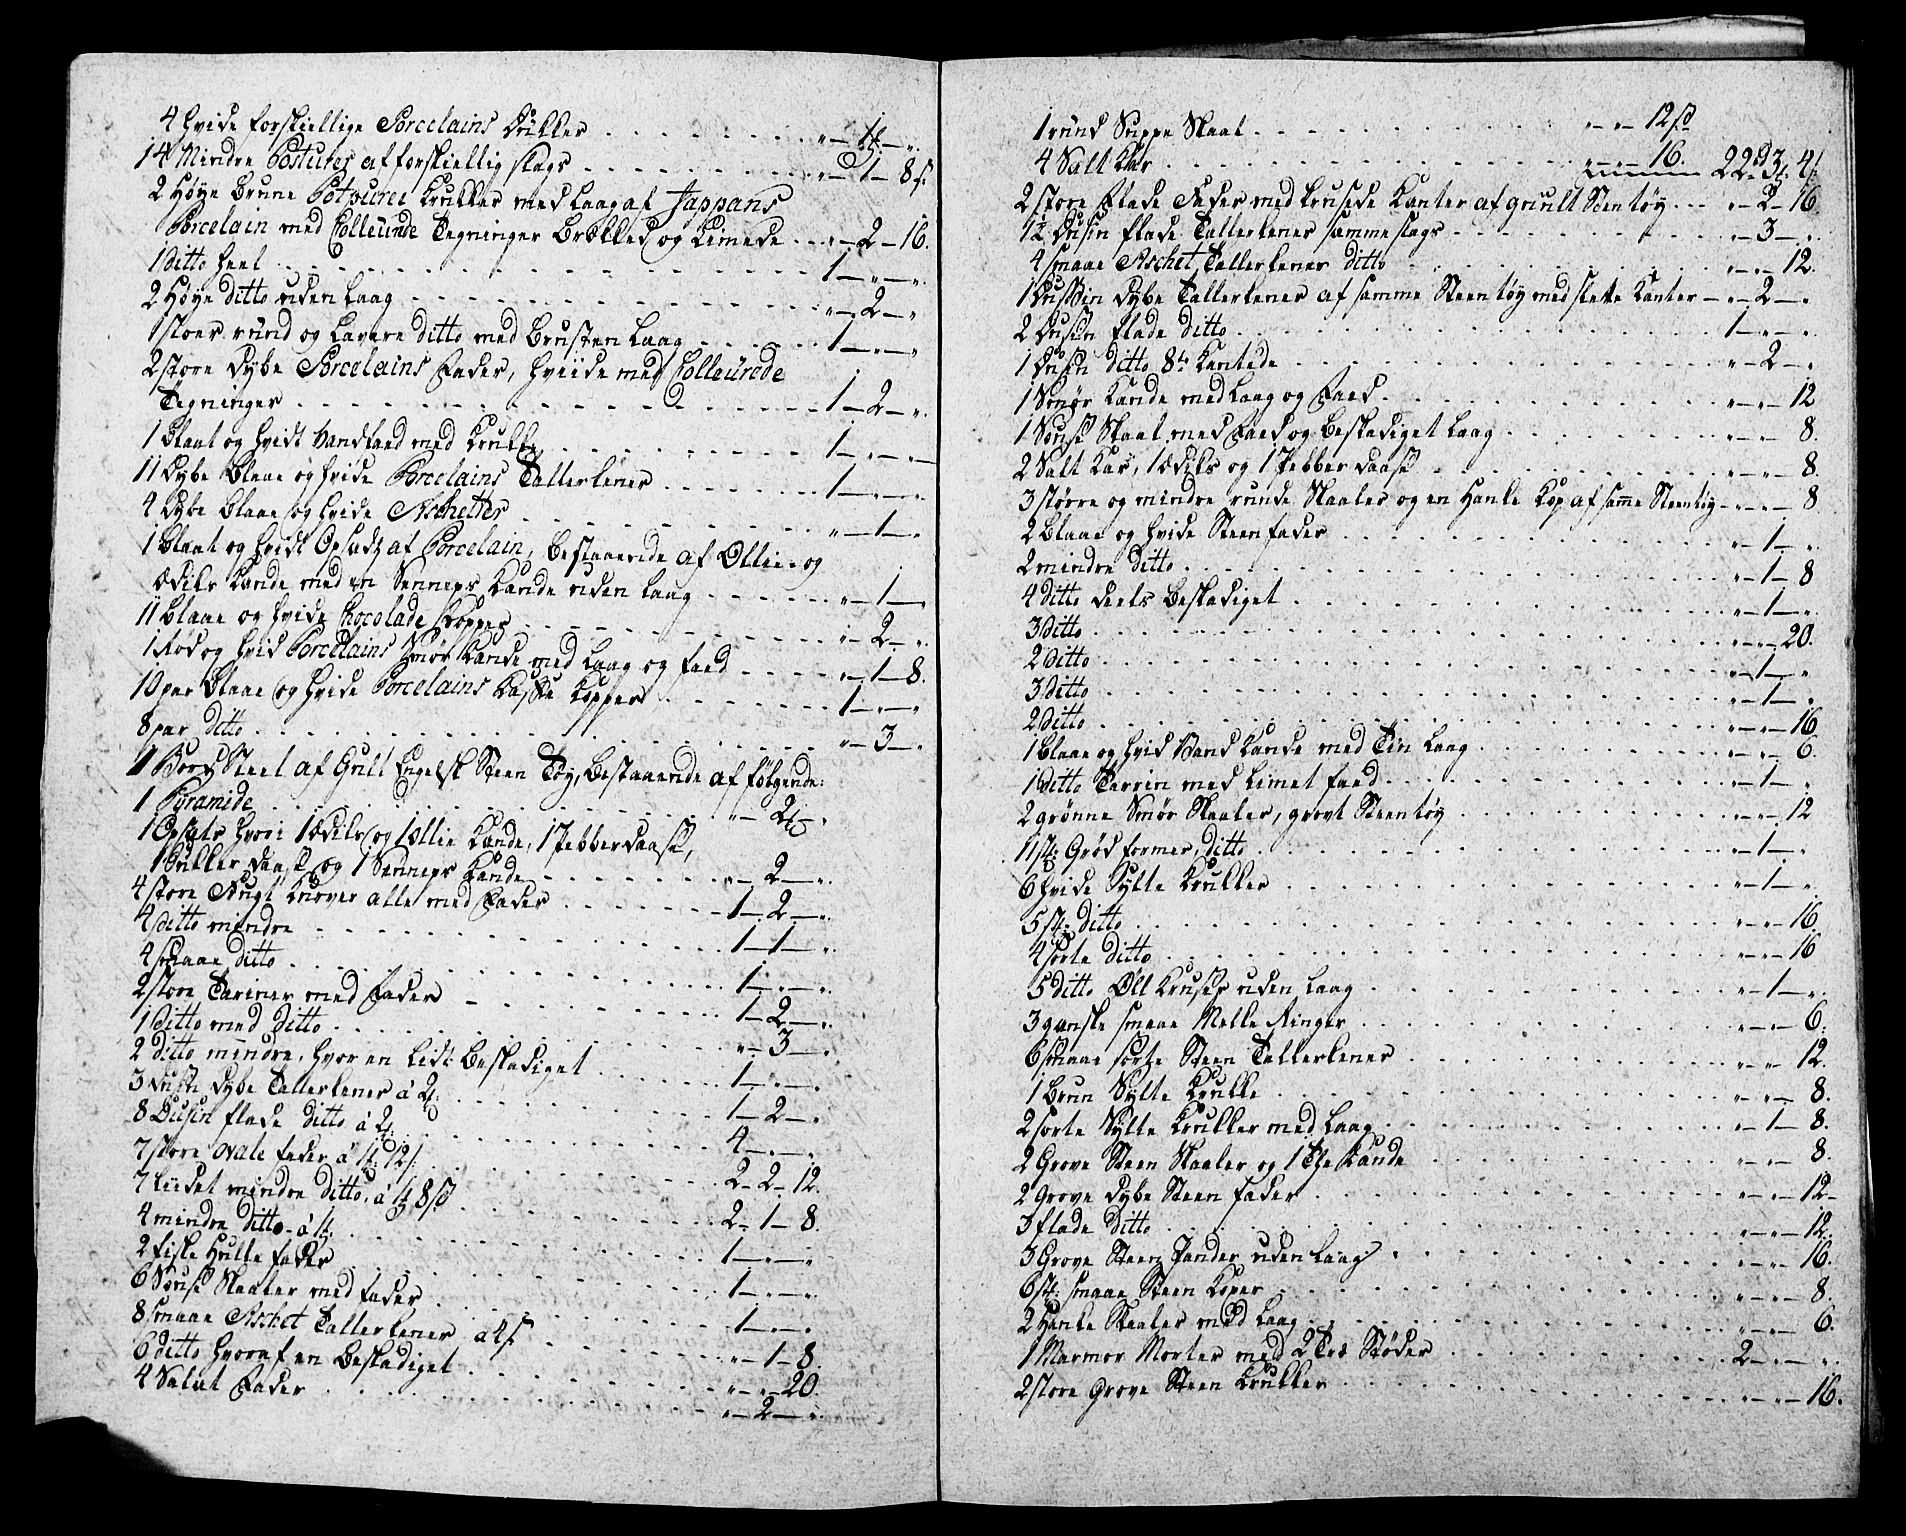 4 hvide forskiellige Porcelains Dukker . . . „ — 1 — „
14 Mindre Postures af forskiellig slags . . . „ — 1 — 8 s.
2 Høye brune Potpurei Krukker med Laag af Jappans
Porcelain med Colleurede Tegninger brøkked og Limede . . . „ — 2 — 16.
1 ditto heel . . . 1 — „ — „
2 Høye ditto uden Laag . . . „ — 2 — „
1 stoer rund og lavere ditto med brusten Laag . . . 1 — „ — „
2 store dybe Porcelains Fader, hviide med Colleurede
Tegninger . . . 1 — 2 — „
1 blaat og hvidt Vandfaed med Krukke . . . 1 — „ — „
11 Dybe blaae og hvide Porcelains Tallerkener . . . 1 — „ — „
4 dybe blaae og hvide Aschetter . . . „ — 1 — „
1 blaat og hvidt Opsadz af Porcelain, bestaaende af Ollie- og
Ædike Kande med en Senneps Kande uden Laag . . . „ — 1 — „
11 blaae og hvide Chocolade Kopper . . . „ — 2 — „
1 Rød og hvid Porcelains Smør Kande med Laag og faed . . . „ — 1 — 8.
10 par blaae og hvide Porcelains Kaffe Kopper . . . 1 — „ — „
8 par ditto . . . „ — 3 — „
1 Bord Stel af Guult Engelsk Steen Tøy, bestaaende af følgende:
1 Pyramide . . . „ — 2 — „
1 Opsats hvori 1 Ædike og 1 Ollie Kande, 1 Pebberdaase,
1 Sukker daase og 1 Senneps Kande . . . „ — 2 — „
4 store Frugt Kurver alle med Fader . . . 1 — 2 — „
4 ditto mindre . . . 1 — 1 — „
4 smaae ditto . . . 1 — „ — „
2 store Tariner med Fader . . . 1 — 2 — „
1 ditto med ditto . . . „ — 3 — „
2 ditto mindre, hvor en lidt beskadiget . . . 1 — „ — „
3 Dusin dybe Tallerkener á 2 . . . 1 — 2 — „
8 Dusin flade ditto á 2 . . . 4 — „ — „
7 store ovale Fader á 1 12 s. . . . 2 — 2 — 12.
7 liidet mindre ditto, á 1 8 s . . . 2 — 1 — 8.
4 mindre ditto á 1 . . . 1 — „ — „
2 fiske Hulle Fader . . . 1 — „ — „
6 Souse Skaaler med Fader . . . 1 — „ — „
8 smaae Aschet Tallerkener á 4 s . . . „ — 1 — 8.
6 ditto hvoraf en beskadiget . . . „ — „ — 20.
4 Salat Fader . . . „ — 2 — „
1 rund Suppe Skaal . . . „ — „ — 12 s
4 Salt Kar . . . „ — „ — 16. 22 — 3 — 4
2 store Flade Fader med krusede Kanter af guult Steentøy . . . „ — 2 — 16.
1½ Dusin flade Tallerkener samme slags . . . „ — 3 — „
4 smaae Aschet Tallerkener ditto . . . „ — „ — 12.
1 Dussin dybe Tallerkener af samme Steen tøy med slette Kanter — „ — 2 — „
2 Dusin flade ditto . . . 1 — „ — „
1 Dusin ditto 8te Kantede . . . „ — 2 — „
1 Smør Kande med Laag og Faed . . . „ — „ — 12
1 Souse Skaal med Faed og beskadiget Laag . . . „ — „ — 8.
2 Salt Kar, 1 Ædike og 1 Pebber daase . . . „ — „ — 8
3 større og mindre runde Skaaler og en Hanke Kop af samme Steentøy — „ — „ — 8
2 blaae og hvide Steen Fader . . . „ — 1 — „
2 mindre ditto . . . „ — 1 — 8
4 ditto deels beskadiget . . . „ — 1 — „
3 ditto . . . „ — „ — 20.
2 ditto . . . „ — 1 — „
3 ditto . . . „ — 1 — „
2 ditto . . . „ — „ — 16
1 blaae og hvid Vand Kande med Tin Laag . . . „ — „ — 6.
1 ditto Terrin med Limet faed . . . „ — 1 — „
2 grønne Smør Skaaler, grovt Steentøy . . . „ — „ — 12
11 st: Grød former, ditto . . . „ — 1 — „
6 hvide Sylte Krukker . . . „ — 1 — „
5 st: ditto . . . „ — „ — 16.
4 sorte ditto . . . „ — „ — 16
5 ditto Øll Kruse uden Laag . . . „ — 1 — „
3 ganske smaae Melke Ringer . . . „ — „ — 6.
6 smaae sorte Steen Tallerkener . . . „ — „ — 12.
1 brun Sylte Krukke . . . „ — „ — 8.
2 sorte Sylte Krukker med Laag . . . „ — 1 — 8.
2 Grove Steen Skaaler og 1 The Kande . . . „ — „ — 8.
2 Grove dybe Steen Fader . . . „ — „ — 12 —
3 flade ditto . . . „ — „ — 12.
3 Grove Steen Pander uden Laag . . . „ — „ — 16.
6 st: smaae Steen Koper . . . „ — „ — 8.
2 Hanke Skaaler med Laag . . . „ — „ — 6.
1 Marmor Morter med 2 Træ Støder . . . 2 — „ — „
2 store Grove Steen Krukker . . . „ — „ — 16.